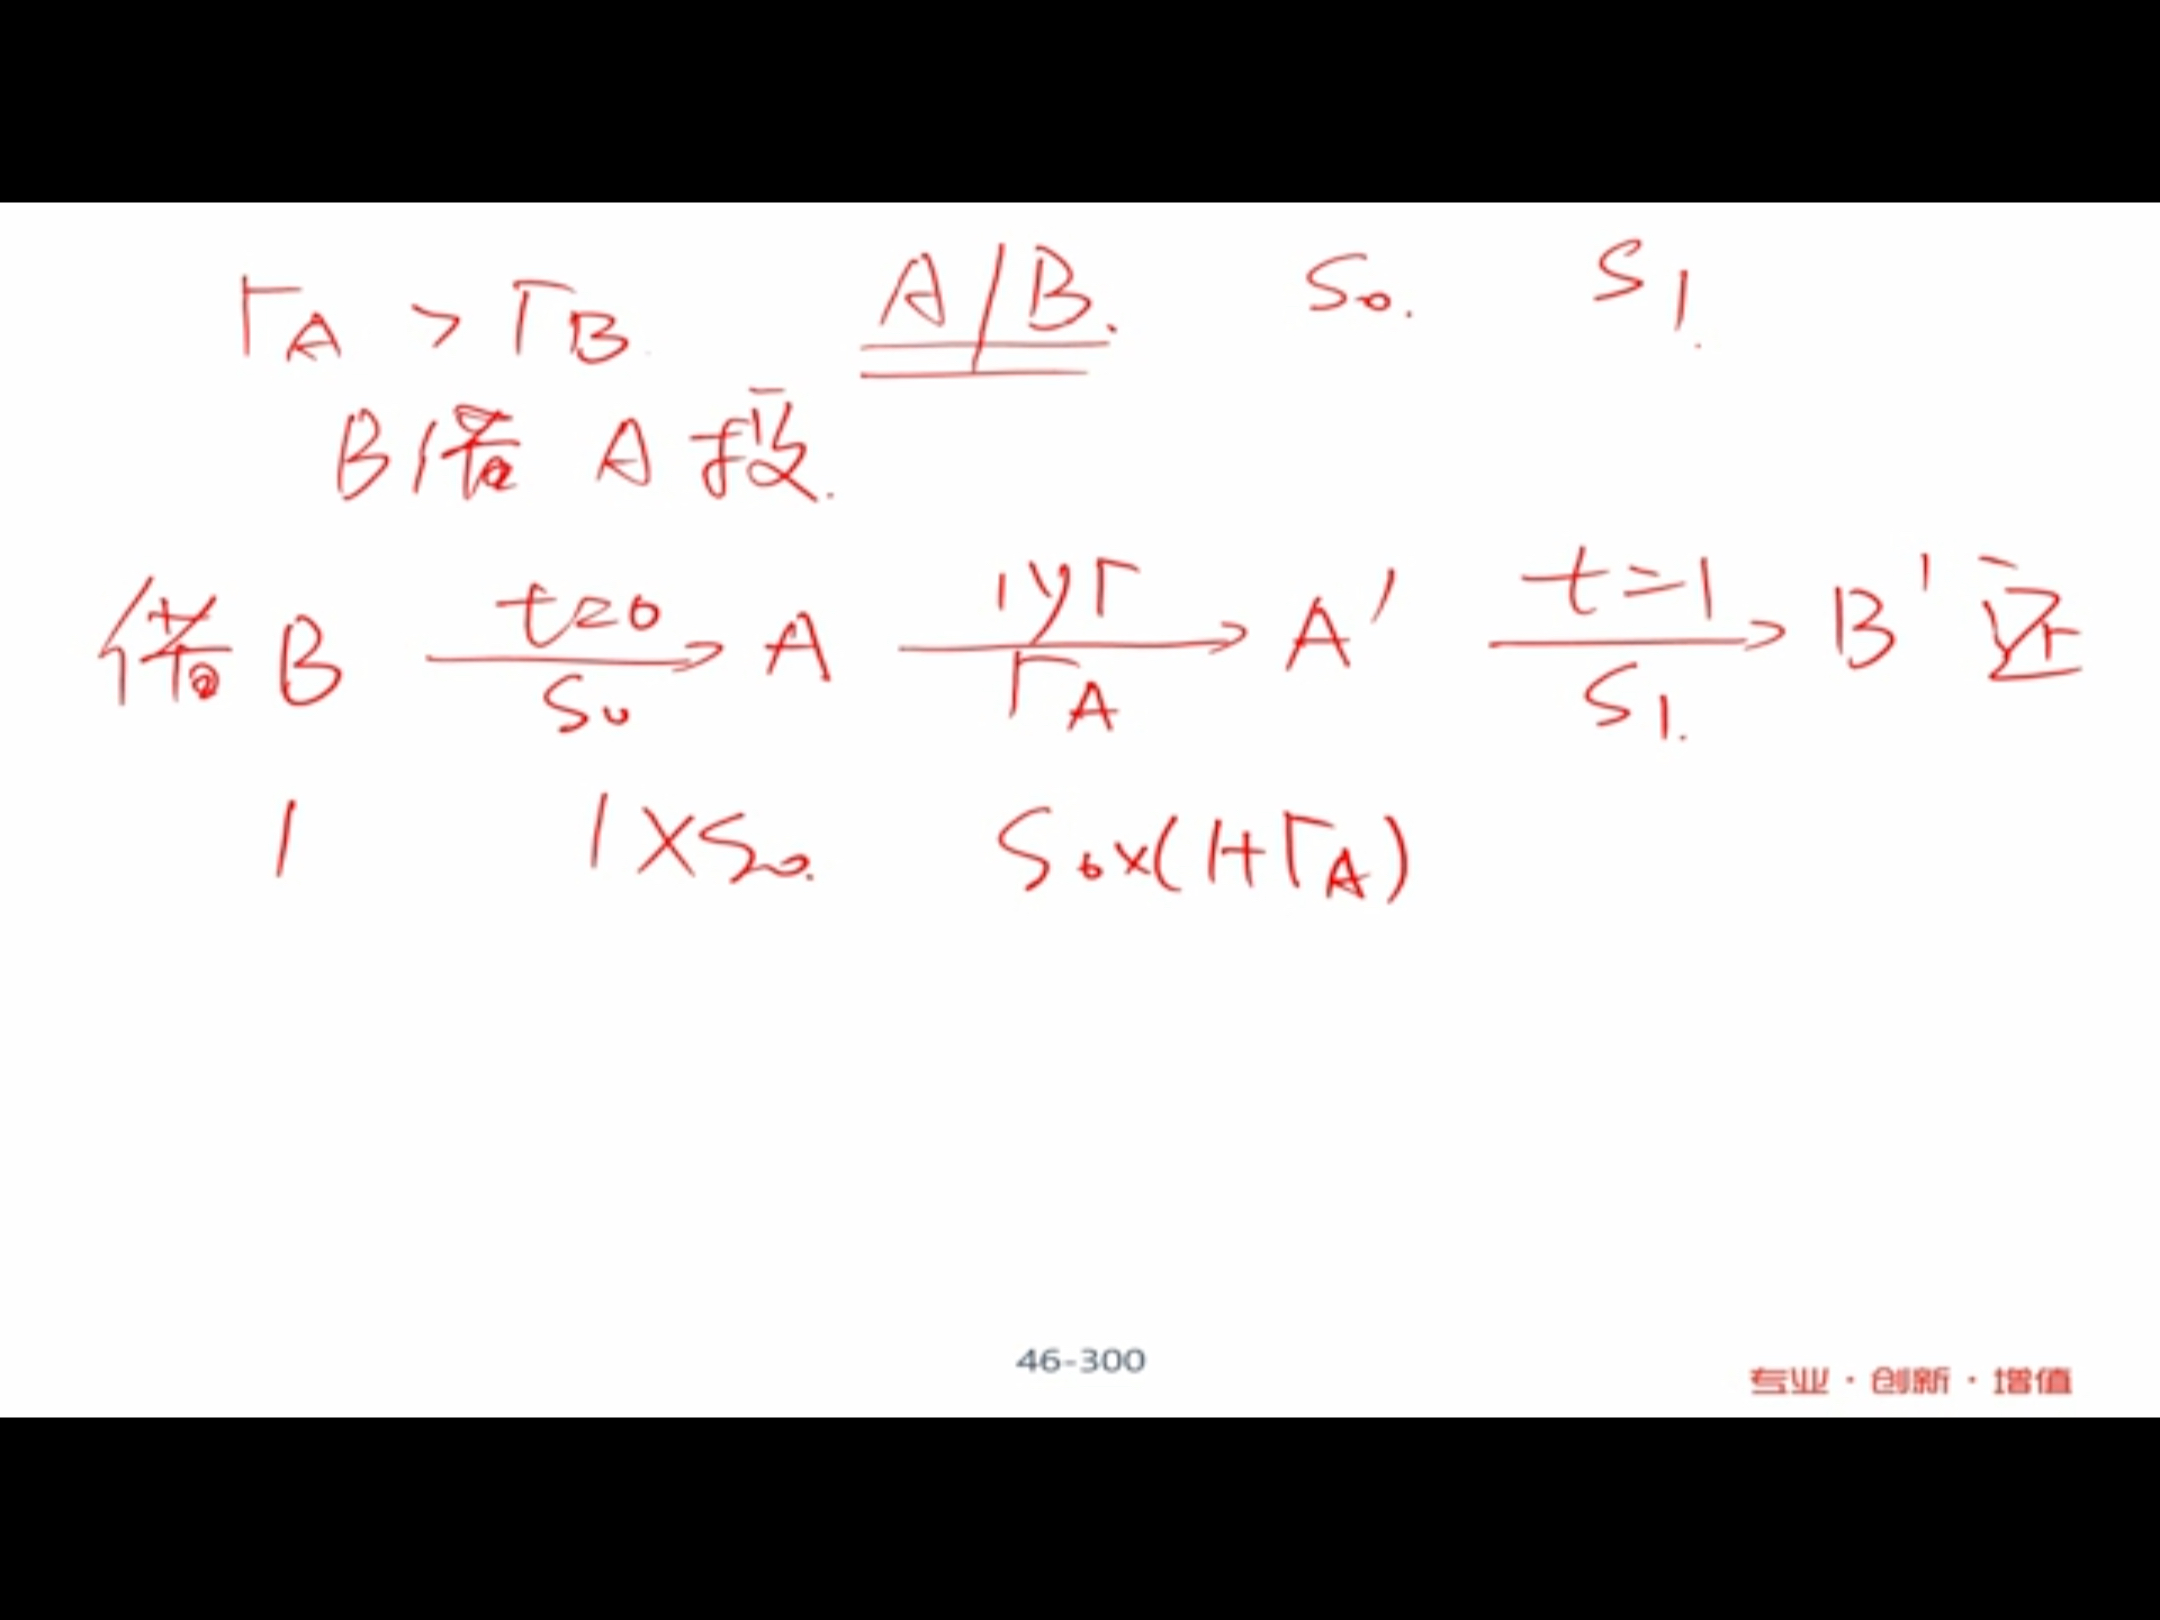 rA > rB A/B. S0. S1.
B借 A投.
借B t=0 S0 → A 1yr rA → A' t=1 S1. → B' 还
1 1×S0. S0×(1+rA)
46-300
专业·创新·增值